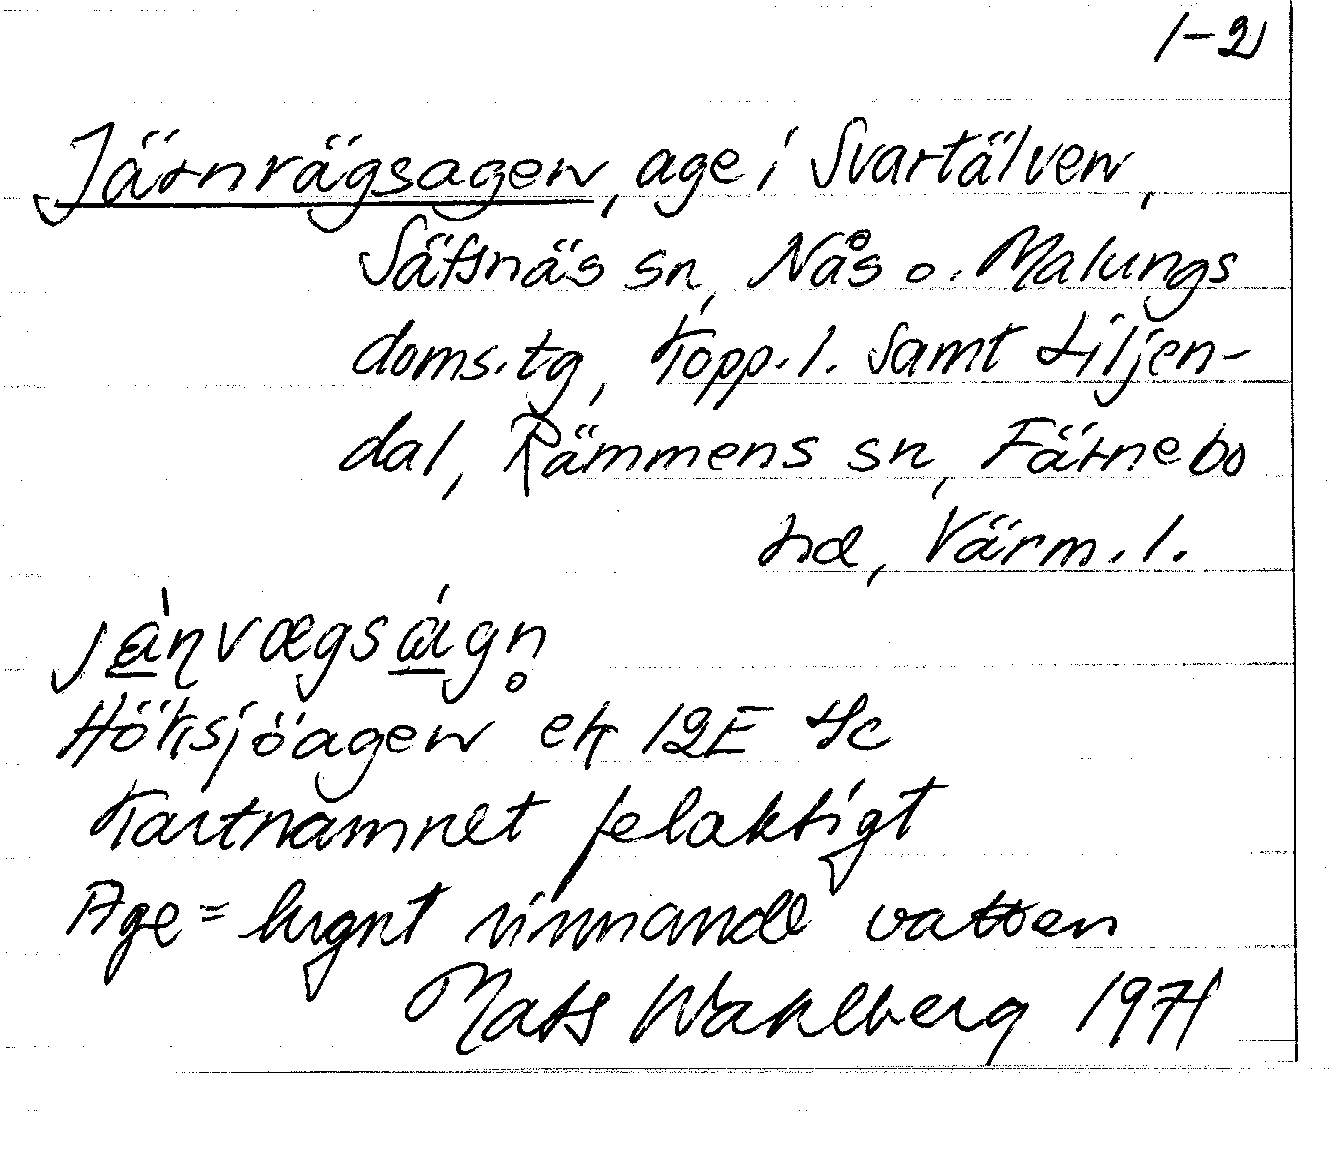 1-2
Järnvägsagen, age i Svartälven,
Säfsnäs sn, Nås o. Malungs
doms.tg, Kopp. l. samt Liljen-
dal, Rämmens sn, Färnebo
hd, Värm. l.
Höksjöagen ek 12E 4c
Kartnamnet felaktigt
Age = lugnt rinnande vatten
Mats Wahlberg 1971